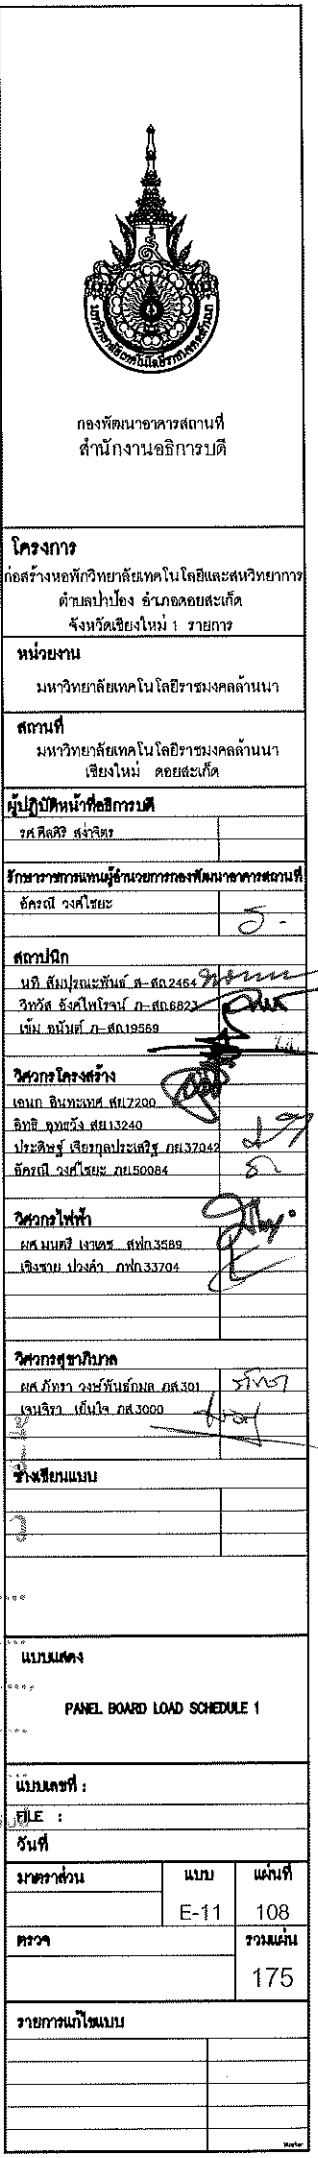 กองพัฒนาอาคารสถานที่
สำนักงานอธิการบดี
โครงการ
ก่อสร้างหอพักวิทยาลัยเทคโนโลยีและสหวิทยาการ
ตำบลป่าป้อง อำเภอดอยสะเก็ด
จังหวัดเชียงใหม่ 1 รายการ
หน่วยงาน
มหาวิทยาลัยเทคโนโลยีราชมงคลล้านนา
สถานที่
มหาวิทยาลัยเทคโนโลยีราชมงคลล้านนา
เชียงใหม่ ดอยสะเก็ด
ผู้ปฏิบัติหน้าที่อธิการบดี
รศ.ศีลศิริ สง่าจิตร
รักษาราชการแทนผู้อำนวยการกองพัฒนาอาคารสถานที่
อัครณี วงศ์ไชยะ
สถาปนิก
นที สัมปุรณะพันธ์ ส-สถ.2464
วิทวัส อังศ์ไพโรจน์ ภ-สถ.6823
เข้ม อนันต์ ภ-สถ.19569
วิศวกรโครงสร้าง
เอนก อินทะเทศ สย.7200
อิทธิ อุทธวัง สย.13240
ประดิษฐ์ เจียรกุลประเสริฐ ภย.37042
อัครณี วงศ์ไชยะ ภย.50084
วิศวกรไฟฟ้า
ผศ.มนตรี เงาเดช สฟก.3589
เชิงชาย ปวงคำ ภฟก.33704
วิศวกรสุขาภิบาล
ผศ.ภัทรา วงษ์พันธ์กมล ภส.301
เจนจิรา เย็นใจ ภส.3000
ช่างเขียนแบบ
แบบแสดง
PANEL BOARD LOAD SCHEDULE 1
แบบเลขที่ :
FILE :
วันที่
มาตราส่วน แบบ แผ่นที่
E-11 108
ตรวจ รวมแผ่น
175
รายการแก้ไขแบบ
Master